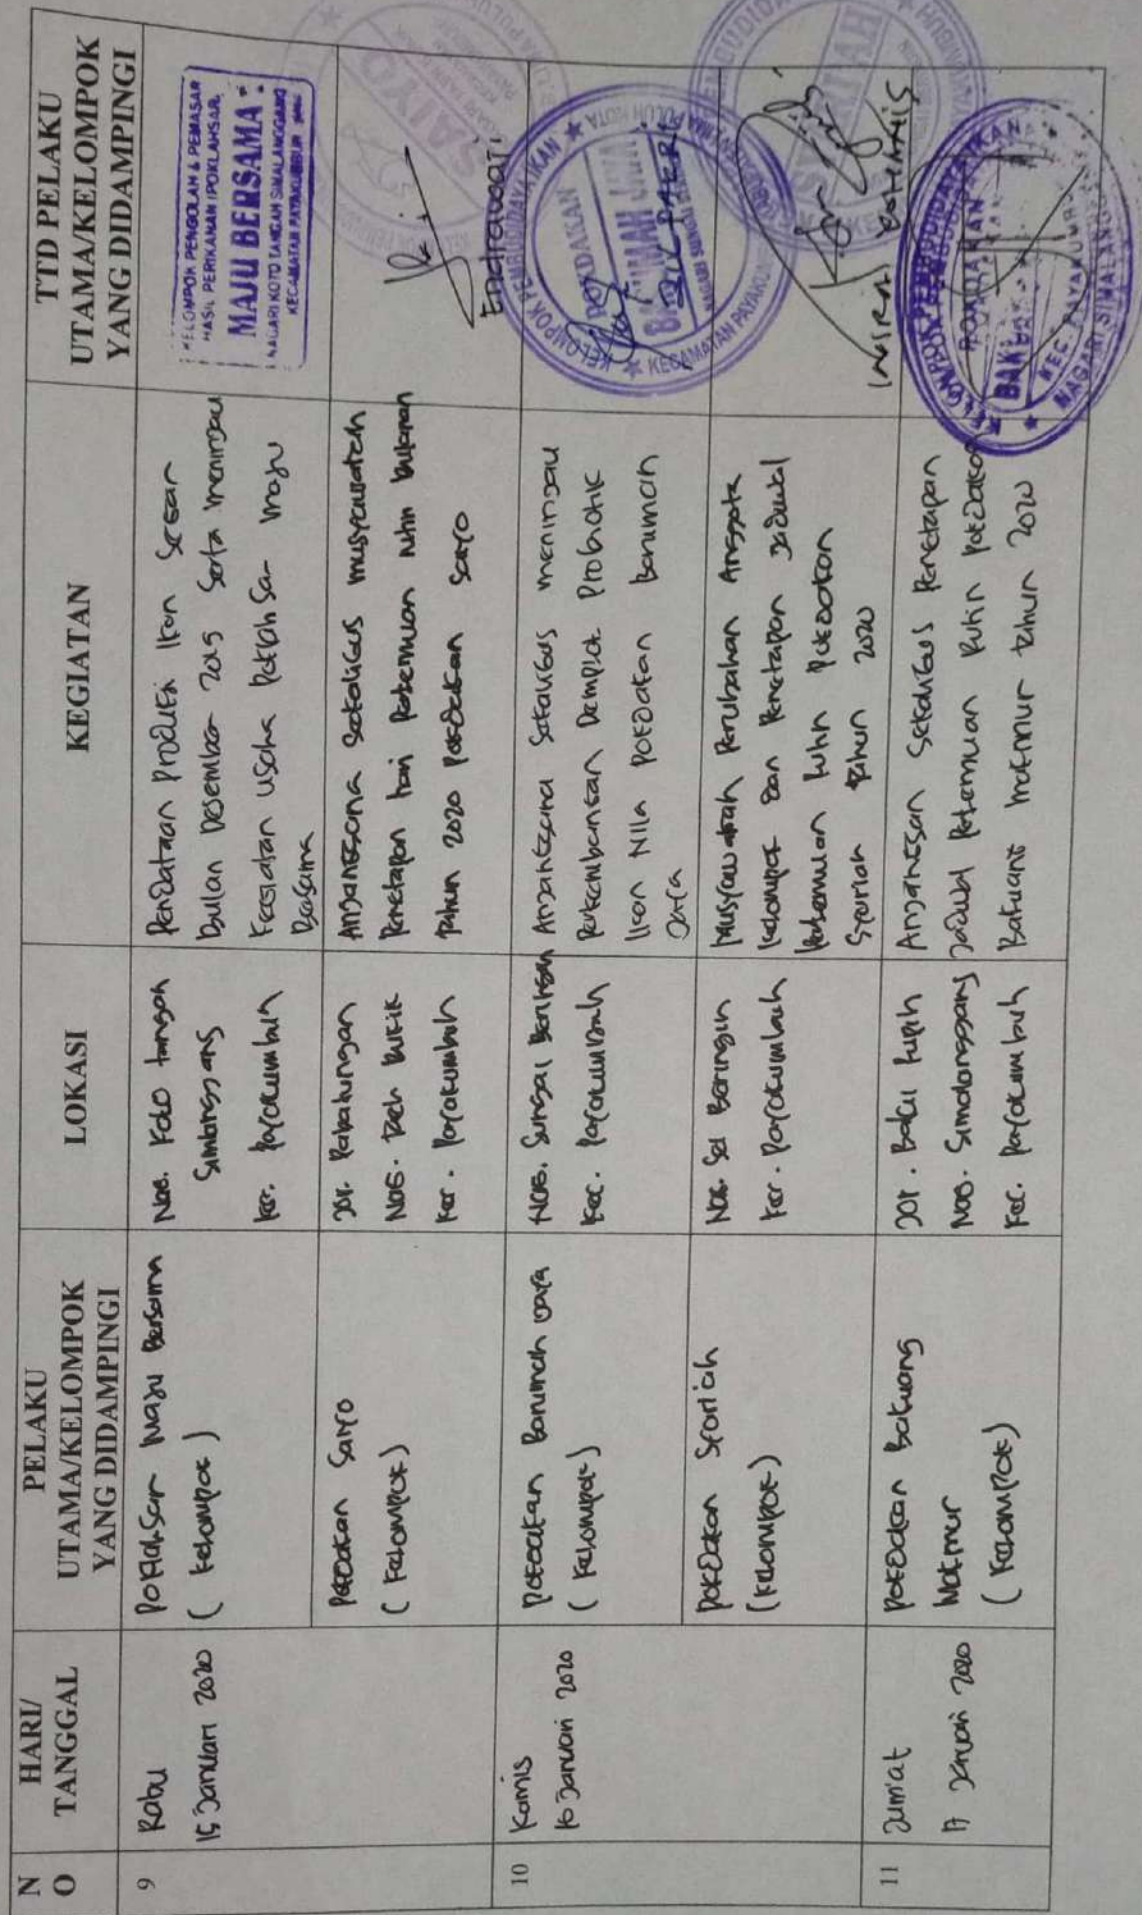 N
O
HARI/
TANGGAL
PELAKU
UTAMA/KELOMPOK
YANG DIDAMPINGI
LOKASI
KEGIATAN
TTD PELAKU
UTAMA/KELOMPOK
YANG DIDAMPINGI
9
Rabu
15 Januari 2020
Poklahsar Maju Bersama
( Kelompok )
Nag. Koto tangah
Simalanggang
Kec. Payakumbuh
Pendataan Produksi Ikan Segar
bulan Desember 2019 Serta meninjau
Kegiatan usaha Poklahsar maju
Bersama
KELOMPOK PENGOLAH & PEMASAR
HASIL PERIKANAN (POKLAHSAR)
MAJU BERSAMA
NAGARI KOTO TANGAH SIMALANGGANG
KECAMATAN PAYAKUMBUH
Pokdakan Saiyo
( Kelompok )
Jor. Patahungan
Nag. Taeh Bukik
Kec. Payakumbuh
Anjangsana Sekaligus musyawarah
Penetapan hari Pertemuan rutin bulanan
Tahun 2020 Pokdakan Saiyo
SAIYO
Endrawati
10
Kamis
16 Januari 2020
Pokdakan Barumah Jaya
( Kelompok )
Nag. Sungai Beringin
Kec. Payakumbuh
Anjangsana Sekaligus meninjau
Perkembangan Demplot Probiotik
Ikan Nila Pokdakan Barumah
Jaya
KELOMPOK PEMBUDIDAYA IKAN
POKDAKAN
KECAMATAN PAYAKUMBUH
Pokdakan Syariah
(Kelompok)
Nag. Sei Beringin
Kec. Payakumbuh
Musyawarah Perubahan Anggota
Kelompok dan Penetapan Jadwal
Pertemuan rutin Pokdakan
Syariah Tahun 2020
11
Jum'at
17 Januari 2020
Pokdakan Bakuang
Makmur
( Kelompok )
Jor. Baku
Nag. Simalanggang
Kec. Payakumbuh
Anjangsan Sekaligus Penetapan
Jadwal Pertemuan Rutin Pokdakan
Bakuang makmur tahun 2020
KELOMPOK PEMBUDIDAYA IKAN
POKDAKAN
KEC. PAYAKUMBUH
NAGARI SIMALANGGANG